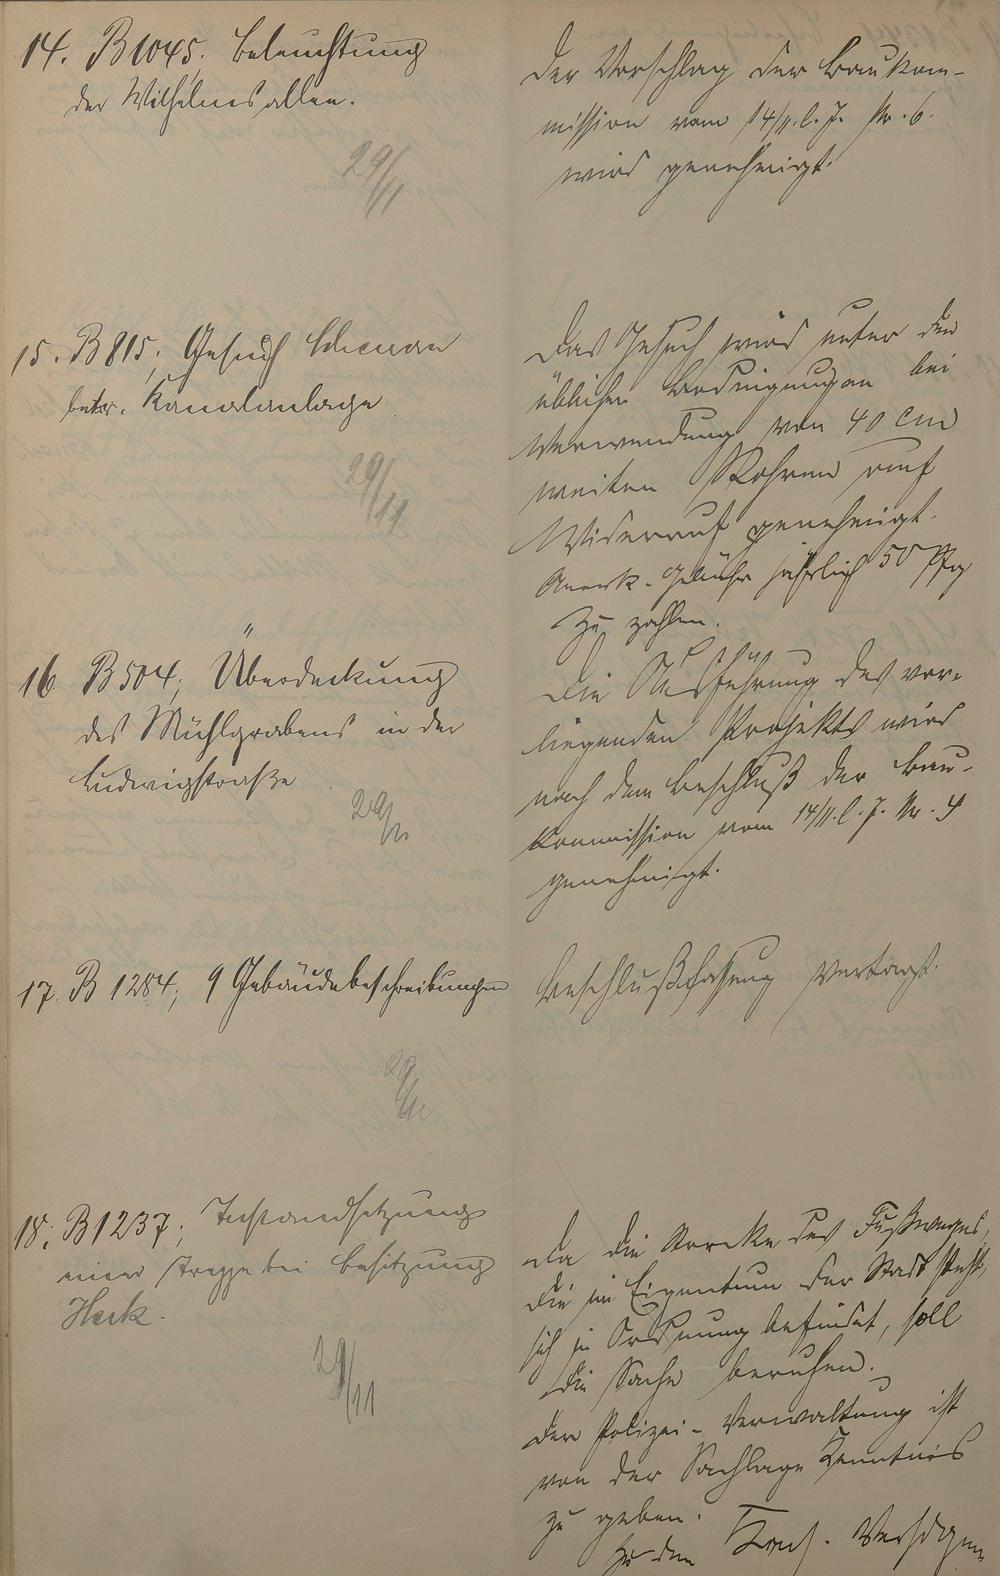 14. B 1045. Beleuchtung
der Wilhelmsallee.
29/11
Der Vorschlag der Baukom-
mission vom 14/11. l. J. Nr. 6.
wird genehmigt.
15. B 815; Gesuch
betr. Kanalanlage
29/11
Das Gesuch wird unter den
üblichen Bedingungen bei
Verwendung von 40 cm
weiten Rohren auf
Widerruf genehmigt.
Anerk.-Gebühr jährlich 50 Pfg
zu zahlen.
16. B 504; Überdeckung
des Mühlgrabens in der
Ludwigstraße
29/11
Die Ausführung des vor-
liegenden Projekts wird
nach dem Beschluß der Bau-
kommission vom 14/11. l. J. Nr. 4
genehmigt.
17. B 1284; 9 Gebäudebeschreibungen
29/11
Beschlußfassung vertagt.
18. B 1237. Instandsetzung
einer Treppe bei Besitzung
Heck.
29/11
Da die Strecke des Fußweges,
die im Eigentum der Stadt steht,
sich in Ordnung befindet, soll
die Sache beruhen.
Der Polizei-Verwaltung ist
von der Sachlage Kenntnis
zu geben.
Zu den